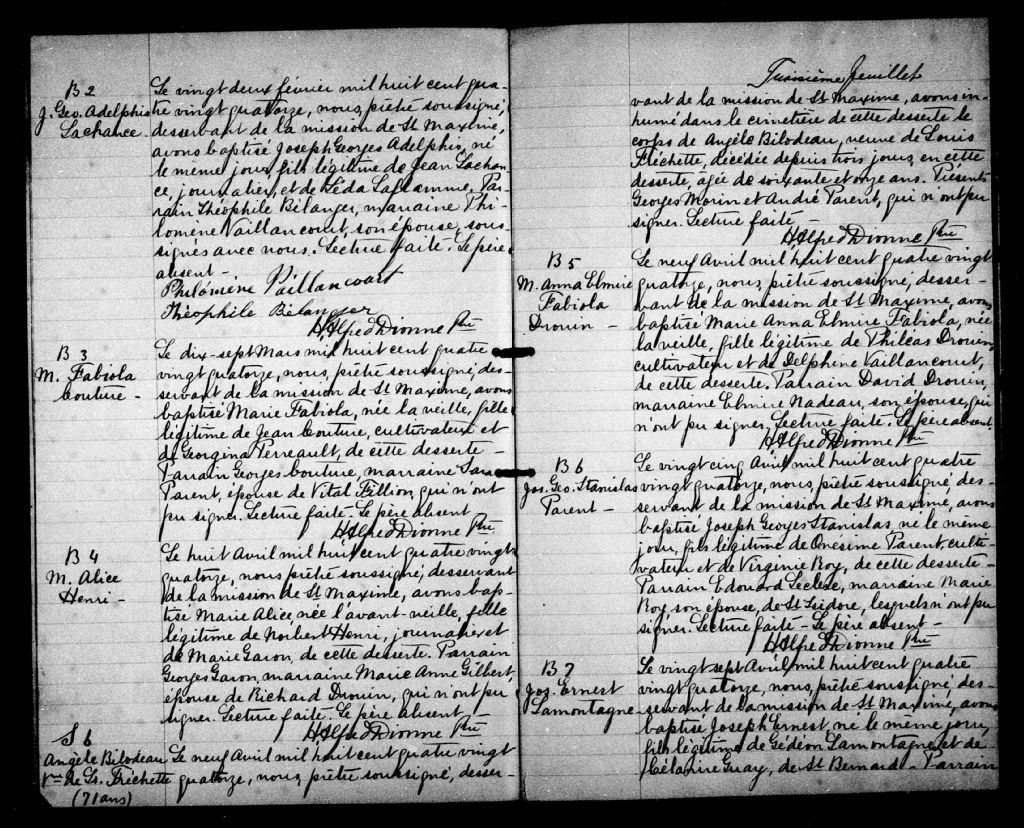 B 2
J. Geo. Adelphis
Lachance -
Le vingt deux février mil huit cent qua-
tre vingt quatorze, nous, prêtre soussigné,
desservant de la mission de St Maxime,
avons baptisé Joseph Georges Adelphis, né
le même jour, fils légitime de Jean Lachan-
ce, journalier, et de Léda Laflamme. Par-
rain Théophile Bélanger, marraine Phi-
lomène Vaillancourt, son épouse, sous-
signés avec nous. Lecture faite. Le père
absent -
Philomène Vaillancourt
Théophile Bélanger
H Alfred Dionne Ptre
B 3
M. Fabiola
Couture -
Le dix-sept Mars mil huit cent quatre
vingt quatorze, nous, prêtre soussigné, des-
servant de la mission de St Maxime, avons
baptisé Marie Fabiola, née la veille, fille
légitime de Jean Couture, cultivateur et
de Georgina Perreault, de cette desserte -
Parrain Georges Couture, marraine Sara
Parent, épouse de Vital Fillion, qui n'ont
pu signer. Lecture faite. Le père absent
H Alfred Dionne Ptre
B 4
M. Alice
Henri -
Le huit Avril mil huit cent quatre vingt
quatorze, nous prêtre soussigné, desservant
de la mission de St Maxime, avons bap-
tisé Marie Alice, née l'avant-veille, fille
légitime de Norbert Henri, journalier et
de Marie Garon, de cette desserte. Parrain
Georges Garon, marraine Marie Anne Gilbert,
épouse de Richard Drouin, qui n'ont pu
signer. Lecture faite. Le père absent -
H Alfred Dionne Ptre
S 6
Angèle Bilodeau
Vve de Ls. Fréchette
(71 ans)
Le neuf Avril mil huit cent quatre vingt
quatorze, nous, prêtre soussigné, desser-
Troisième feuillet
vant de la mission de St Maxime, avons in-
humé dans le cimetière de cette desserte le
corps de Angèle Bilodeau, veuve de Louis
Fréchette, décédée depuis trois jours, en cette
desserte, agée de soixante et onze ans. Présents
Georges Morin et André Parent, qui n'ont pu
signer. Lecture faite -
H Alfred Dionne Ptre
B 5
M. Anna Elmire
Fabiola
Drouin -
Le neuf Avril mil huit cent quatre vingt
quatorze, nous, prêtre soussigné, desser-
vant de la mission de St Maxime, avons
baptisé Marie Anna Elmire Fabiola, née
la veille, fille légitime de Philéas Drouin,
cultivateur et de Delphine Vaillancourt,
de cette desserte. Parrain David Drouin,
marraine Elmire Nadeau, son épouse, qui
n'ont pu signer. Lecture faite. Le père absent.
H Alfred Dionne Ptre
B 6
Jos. Geo. Stanislas
Parent -
Le vingt cinq Avril mil huit cent quatre
vingt quatorze, nous, prêtre soussigné, des-
servant de la mission de St Maxime, avons
baptisé Joseph Georges Stanislas, né le même
jour, fils légitime de Onésime Parent, culti-
vateur et de Virginie Roy, de cette desserte -
Parrain Edouard Leclerc, marraine Marie
Roy son épouse, de St Isidore, lesquels n'ont pu
signer. Lecture faite - Le père absent -
H Alfred Dionne Ptre
B 7
Jos. Ernest
Lamontagne -
Le vingt sept Avril mil huit cent quatre
vingt quatorze, nous, prêtre soussigné, des-
servant de la mission de St Maxime, avons
baptisé Joseph Ernest, né le même jour,
fils légitime de Gédéon Lamontagne et de
Célanire Guay, de St Bernard - Parrain